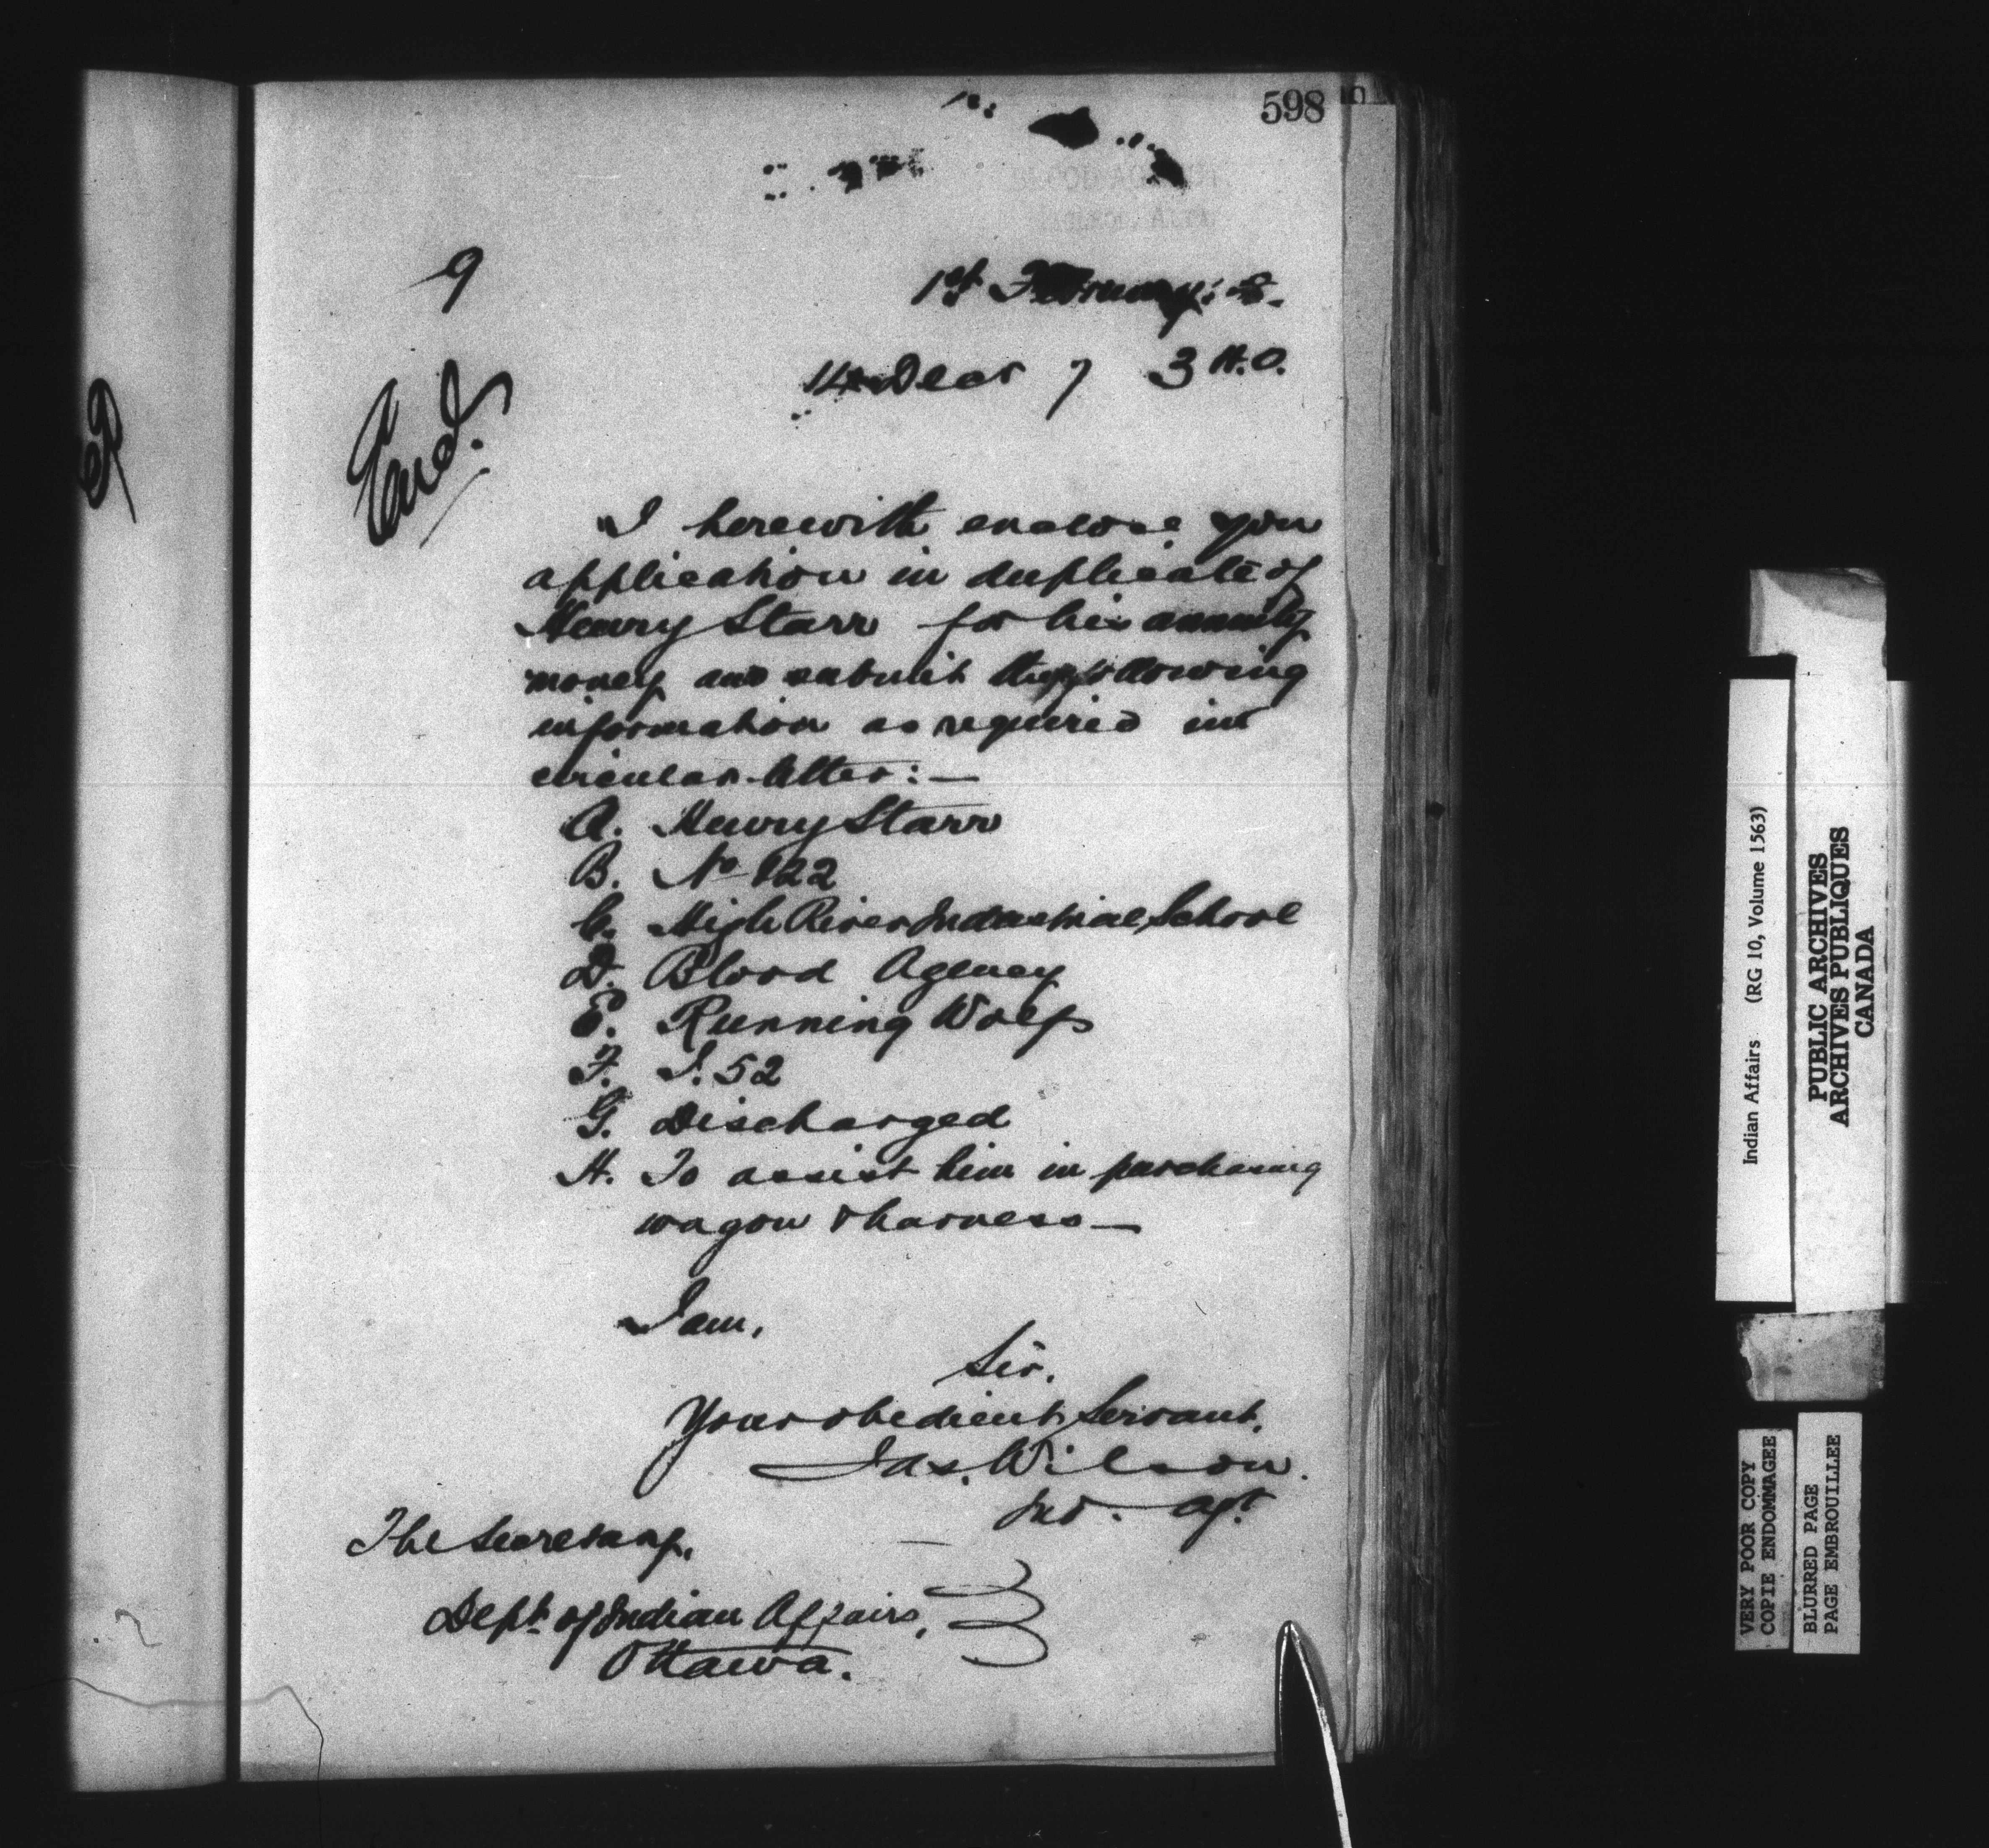 598
BLOOD AGENCY
9
1st February: 8.
14 Decr 7 3 H.O.
Encl.
I herewith enclose you
application in duplicate of
Henry Starr for his annuity
money and submit the following
information as required in
circular letter:—
A. Henry Starr
B. No 122
C. High River Industrial School
D. Blood Agency
E. Running Wolf
F. J. 52
G. Discharged
H. To assist him in purchasing
wagon & harness—
I am,
Sir,
Your obedient Servant,
Jas. Wilson.
Ind. Agt.
The Secretary,
Dept. of Indian Affairs,
Ottawa.
Indian Affairs (RG 10, Volume 1563)
PUBLIC ARCHIVES
ARCHIVES PUBLIQUES
CANADA
VERY POOR COPY
COPIE ENDOMMAGEE
BLURRED PAGE
PAGE EMBROUILLEE